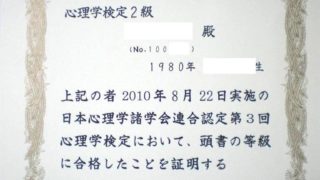 心理学検定2級
殿
(No.100
1980年 生
上記の者2010年8月22日実施の
日本心理学諸学会連合認定第3回
心理学検定において、頭書の等級
に合格したことを証明する